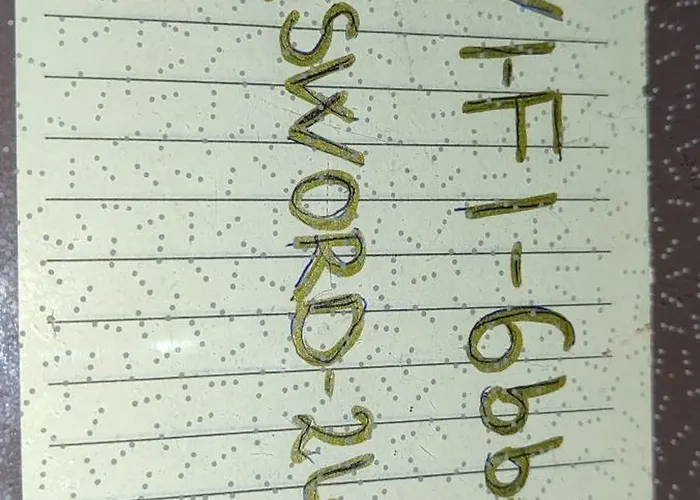 I-FI-6bb
SWORD-2